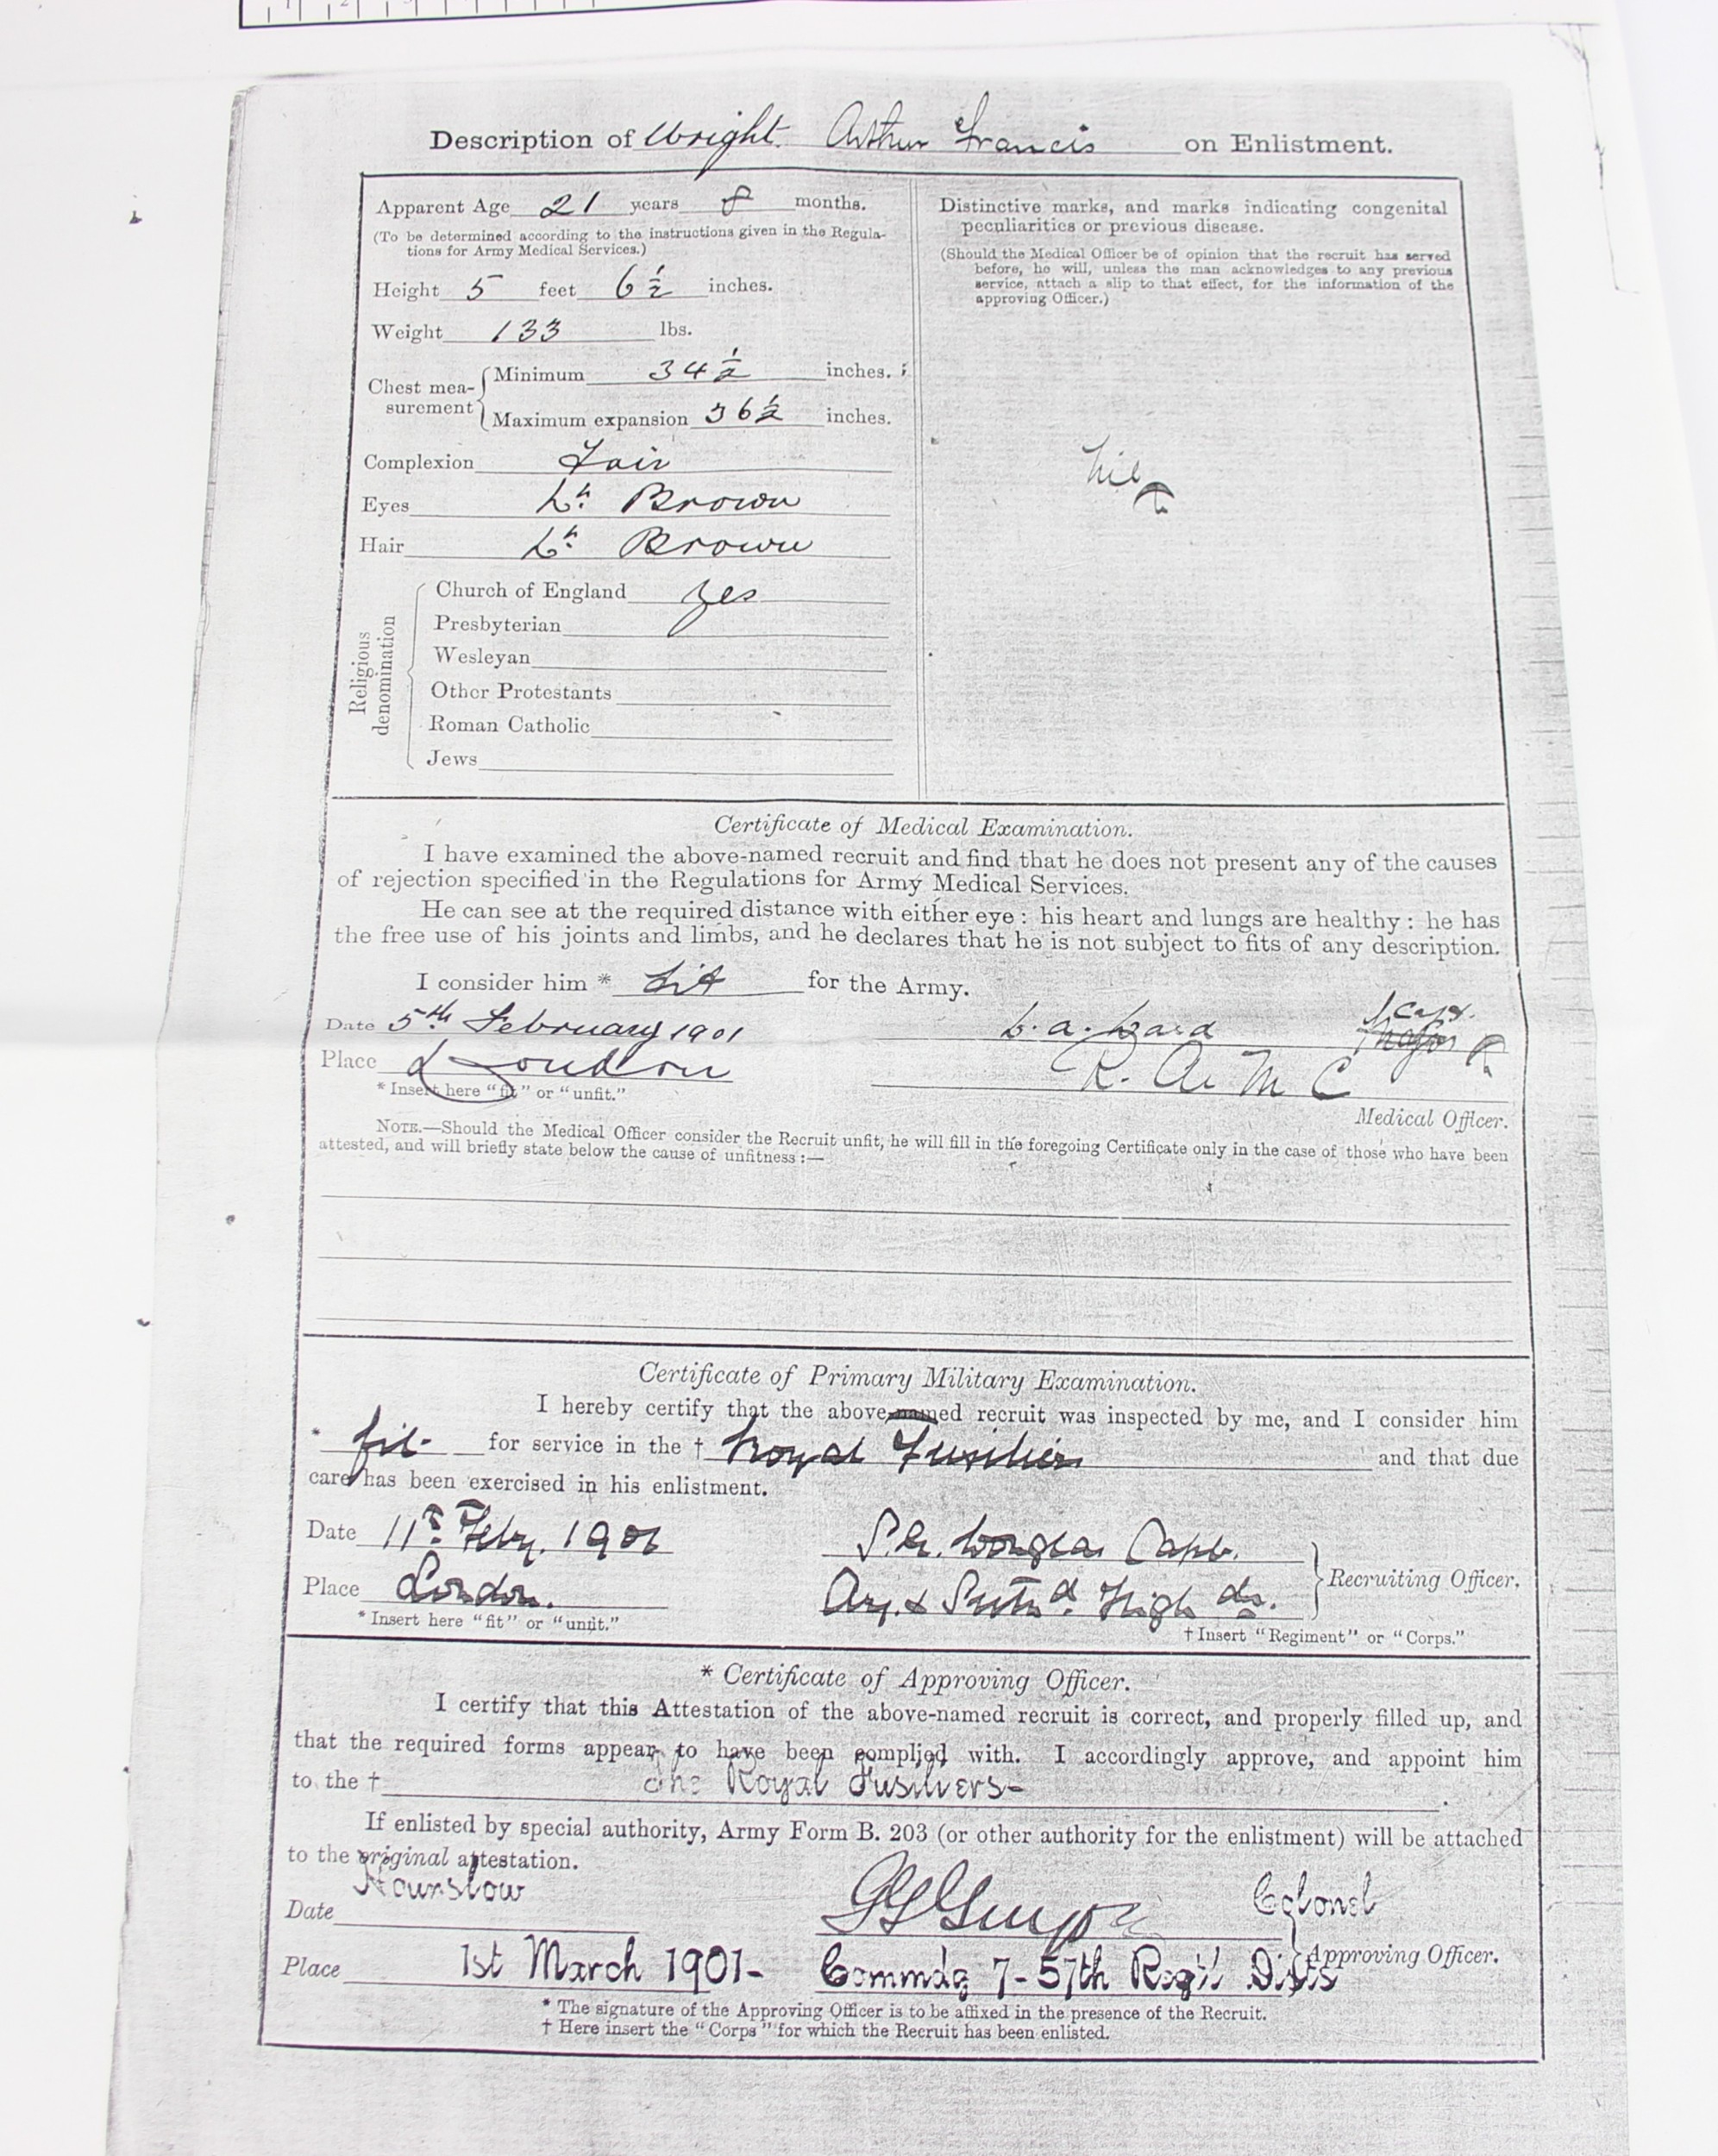 Description of Wright. Arthur Francis on Enlistment.
Apparent Age 21 years 8 months.
(To be determined according to the instructions given in the Regula-
tions for Army Medical Services.)
Height 5 feet 6 1/2 inches.
Weight 133 lbs.
Chest mea-
surement
Minimum 34 1/2 inches.
Maximum expansion 36 1/2 inches.
Complexion Fair
Eyes Lt. Brown
Hair Lt. Brown
Religious
denomination
Church of England Yes
Presbyterian
Wesleyan
Other Protestants
Roman Catholic
Jews
Distinctive marks, and marks indicating congenital
peculiarities or previous disease.
(Should the Medical Officer be of opinion that the recruit has served
before, he will, unless the man acknowledges to any previous
service, attach a slip to that effect, for the information of the
approving Officer.)
Nil
Certificate of Medical Examination.
I have examined the above-named recruit and find that he does not present any of the causes
of rejection specified in the Regulations for Army Medical Services.
He can see at the required distance with either eye: his heart and lungs are healthy: he has
the free use of his joints and limbs, and he declares that he is not subject to fits of any description.
I consider him * Fit for the Army.
Date 5th February 1901
Capt.
Major
Place London
R. A. M C
* Insert here "fit" or "unfit."
Medical Officer.
NOTE.—Should the Medical Officer consider the Recruit unfit, he will fill in the foregoing Certificate only in the case of those who have been
attested, and will briefly state below the cause of unfitness:—
Certificate of Primary Military Examination.
I hereby certify that the above-named recruit was inspected by me, and I consider him
* fit for service in the † Royal Fusiliers and that due
care has been exercised in his enlistment.
Date 11th Feby. 1901 Douglas Capt.
Place London. Arg. & Suthd. Highdrs. Recruiting Officer.
* Insert here "fit" or "unfit."
† Insert "Regiment" or "Corps."
* Certificate of Approving Officer.
I certify that this Attestation of the above-named recruit is correct, and properly filled up, and
that the required forms appear to have been complied with. I accordingly approve, and appoint him
to the † The Royal Fusiliers-
If enlisted by special authority, Army Form B. 203 (or other authority for the enlistment) will be attached
to the original attestation.
Hounslow
Date Colonel
Approving Officer.
Place 1st March 1901- Commdg 7-57th Reg'l Dists
* The signature of the Approving Officer is to be affixed in the presence of the Recruit.
† Here insert the "Corps" for which the Recruit has been enlisted.